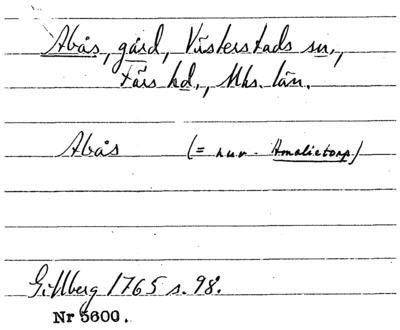 Abås, gård, Västerstads sn.,
Färs hd., Mhs. län.
Abås (= nuv. Amalietorp)
Gillberg 1765 s. 98.
Nr 5600.